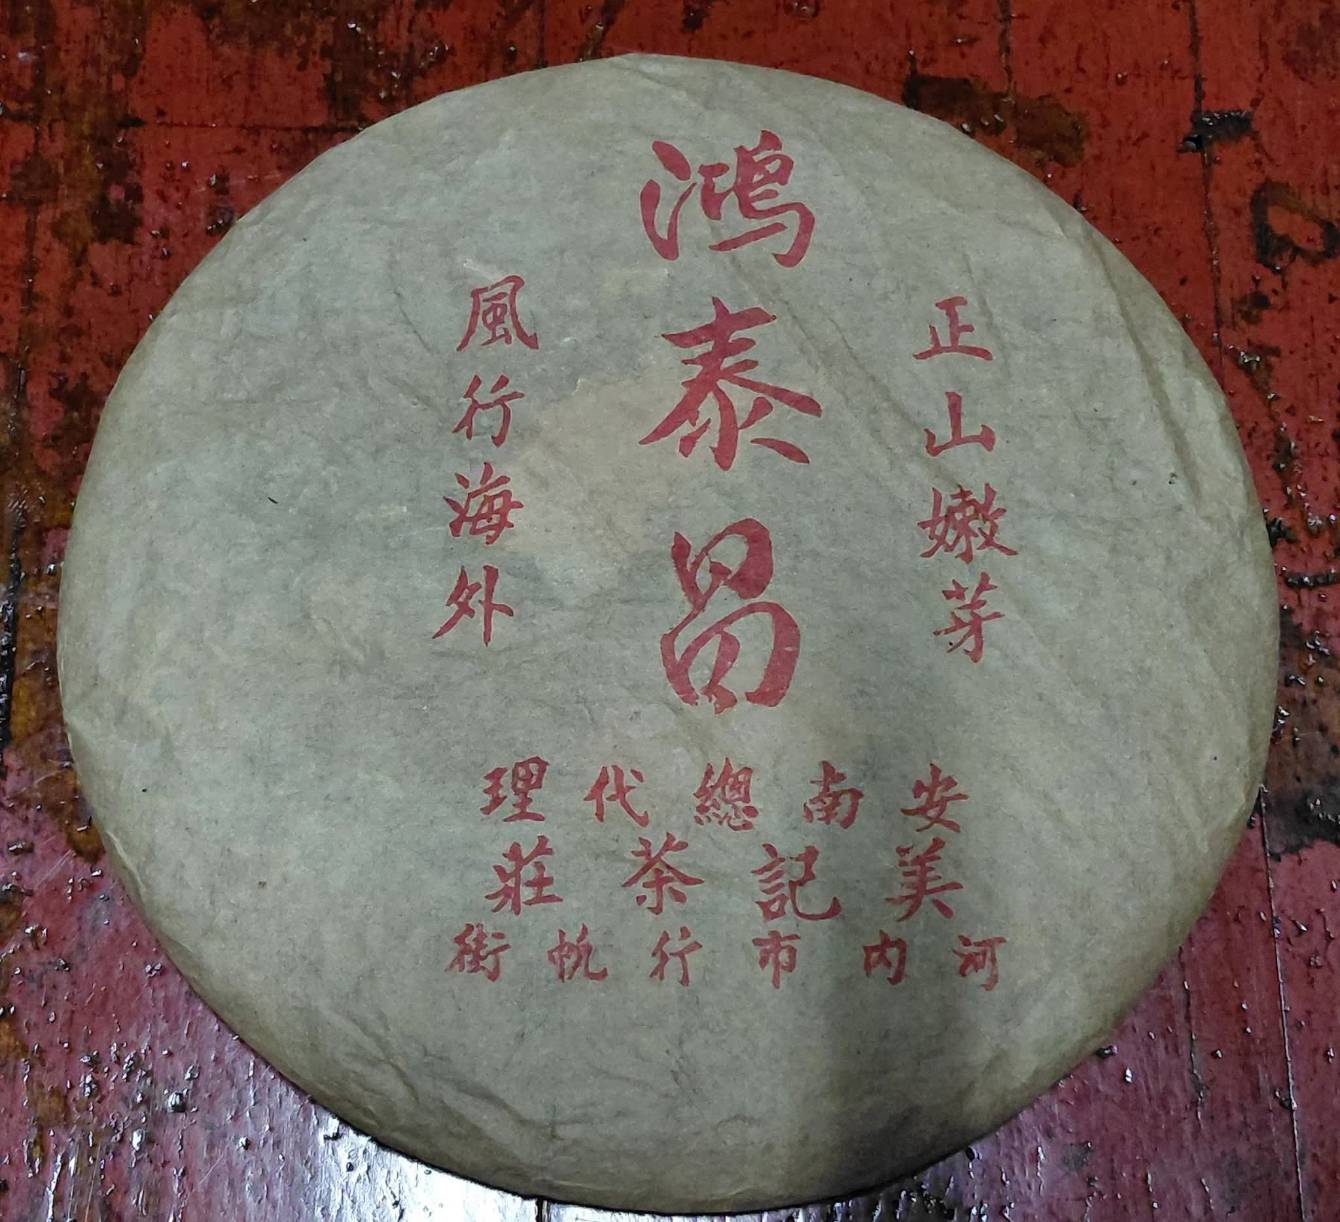 正山嫩芽
鴻泰昌
風行海外
安南總代理
美記茶莊
河內市行帆街